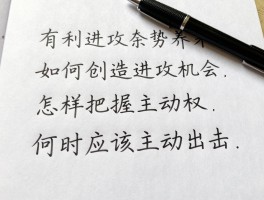 有利进攻态势养
如何创造进攻机会.
怎样把握主动权.
何时应该主动出击.